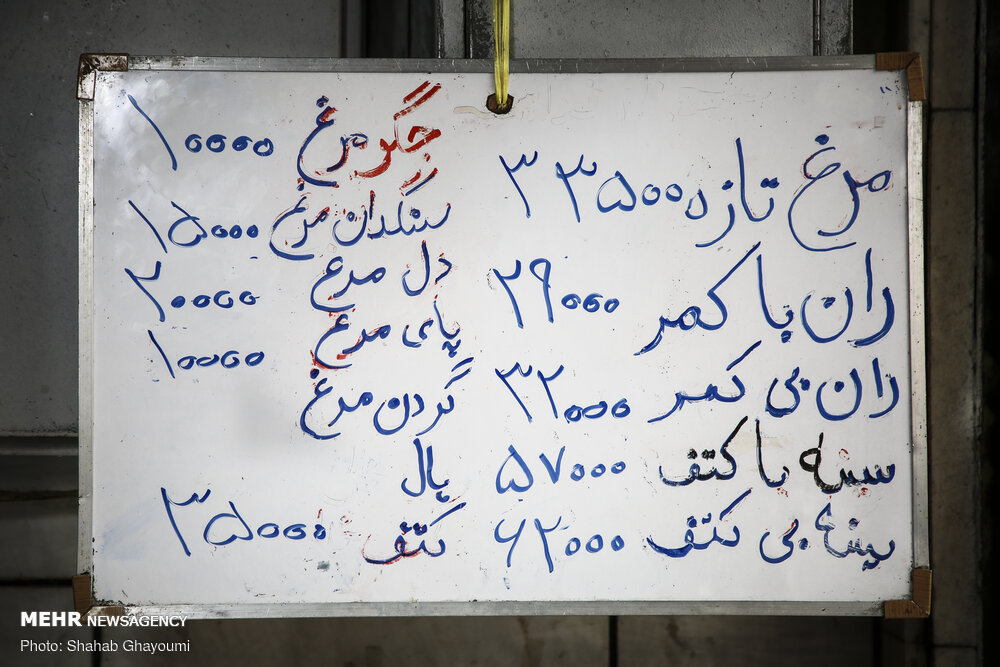 مرغ تازه ۳۳۵۰۰۰
ران با کمر ۲۹۰۰۰۰
ران بی کمر ۳۲۰۰۰۰
سینه با کتف ۵۷۰۰۰۰
سینه بی کتف ۶۲۰۰۰۰
جگر مرغ ۱۰۰۰۰۰
سنگدان مرغ ۱۵۰۰۰۰
دل مرغ ۲۰۰۰۰۰
پای مرغ ۱۰۰۰۰۰
گردن مرغ
بال
کتف ۳۵۰۰۰۰
MEHR NEWSAGENCY
Photo: Shahab Ghayoumi